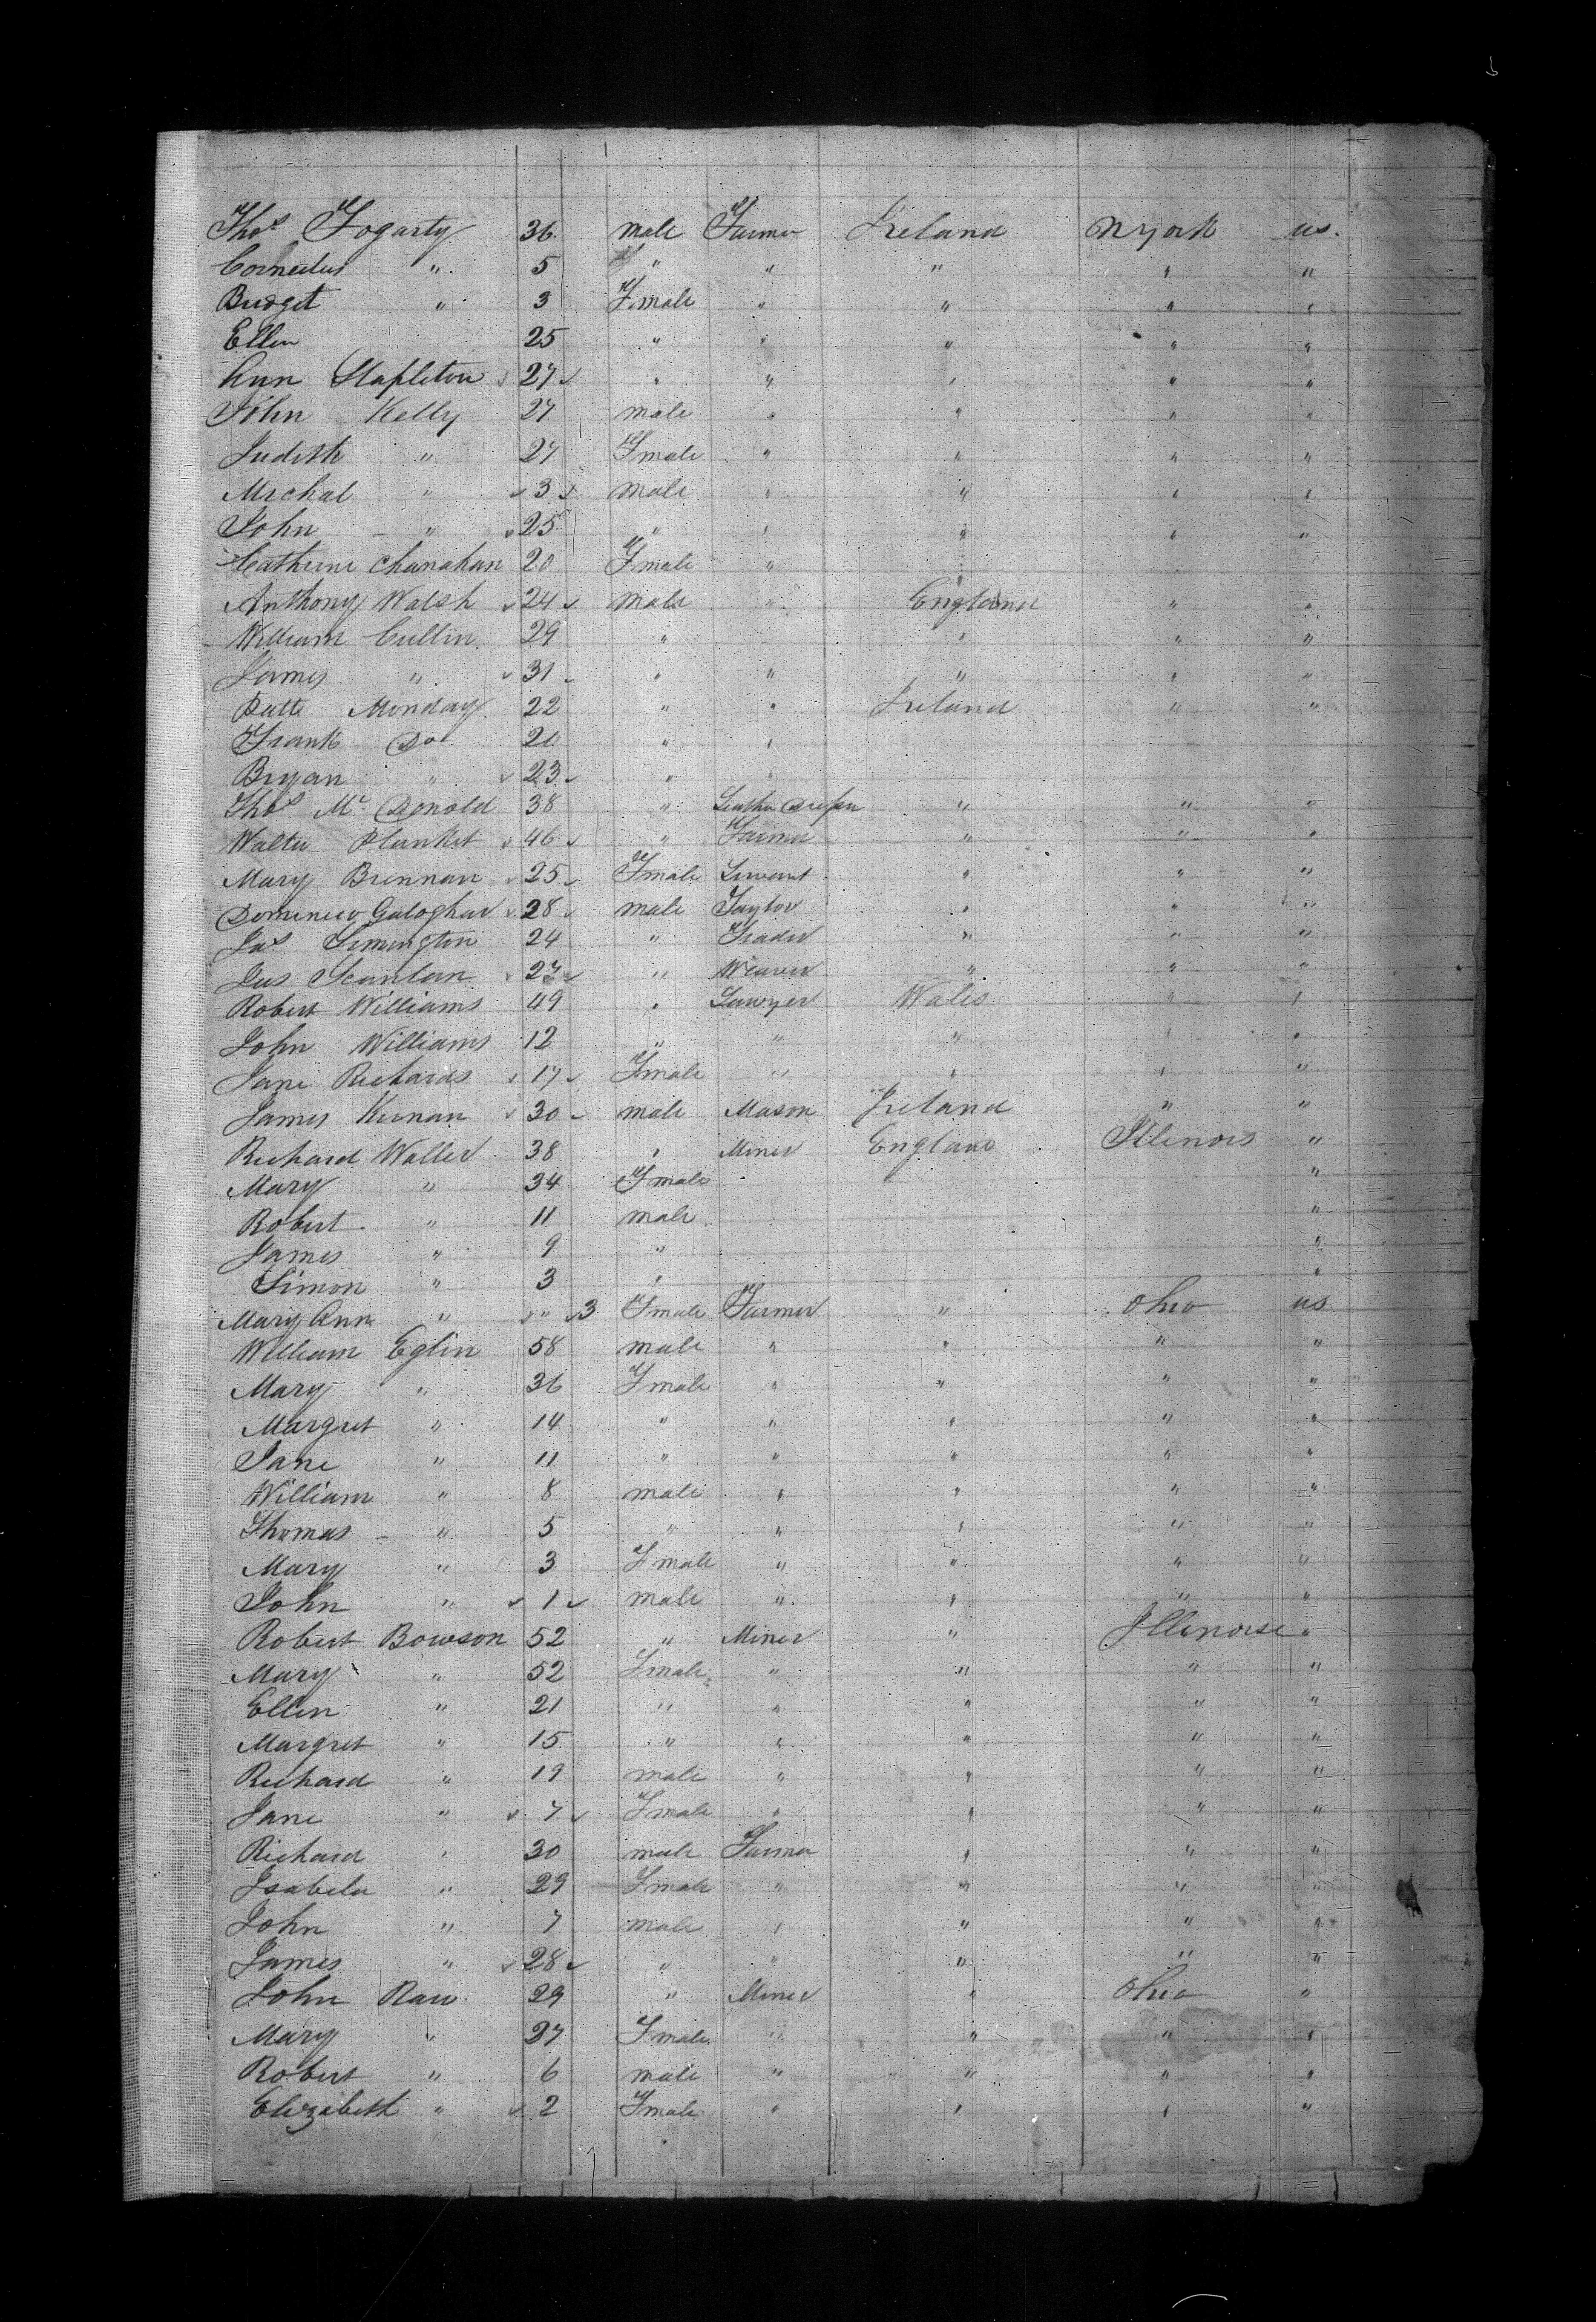 Thos Fogarty 36 male Farmer Ireland N york us.
Cornelius " 5 " " " " "
Bridget " 3 Fmale " " " "
Ellen 25 " " " " "
Ann Stapleton 27 " " " " "
John Kelly 27 male " " " "
Judith " 27 Fmale " " " "
Michal " 3 male " " " "
John " 25 " " " " "
Catherine Chanahan 20 Fmale "
Anthony Walsh 24 male " England " "
William Cullin 29 " " " "
James " 31 " " " " "
Patt Monday 22 " " Ireland " "
Frank Do 20 " "
Bryan " 23 " "
Thos Mc Donald 38 " Leather Dresser " " "
Walter Plunket 46 " Farmer " " "
Mary Brennan 25 Fmale Servant " " "
Galoghar 28 male Taylor " " "
Jas Simington 24 " Trader " " "
Jas Scanlan 27 " Weaver " " "
Robert Williams 49 " Sawyer Wales " "
John Williams 12 " " " " "
Jane Richards 17 Fmale " " " "
James Kernan 30 male Mason Ireland " "
Richard Waller 38 " Miner England Illinois "
Mary " 34 Fmale "
Robert " 11 male "
James " 9 " "
Simon " 3 " "
Mary Ann " " 3 Fmale Farmer " Ohio us
William Eglin 58 male " " " "
Mary " 36 Fmale " " " "
Margret " 14 " " " " "
Jane " 11 " " " " "
William " 8 male " " " "
Thomas " 5 " " " " "
Mary " 3 Fmale " " " "
John " 1 male " " " "
Robert Bowson 52 " Miner " Illinoise "
Mary " 52 Fmale " " " "
Ellin " 21 " " " " "
Margret " 15 " " " " "
Richard " 19 male " " " "
Jane " 7 Fmale " " " "
Richard " 30 male Farmer " " "
Isabela " 29 Fmale " " " "
John " 7 male " " " "
James " 28 " " " " "
John Raw 29 " Miner " Ohio "
Mary " 27 Fmale " " " "
Robert " 6 male " " " "
Elizabeth " 2 Fmale " " " "